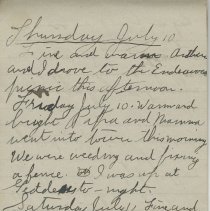 Thursday July 10
Fine and warm Arthur
and I drove to the Endeavor
picnic this afternoon.
Friday July 10. Warm and
bright Papa and Mamma
went into town this morning
We were weeding and fixing
a fence. I was up at
to-night.
Saturday July 11 Fine and